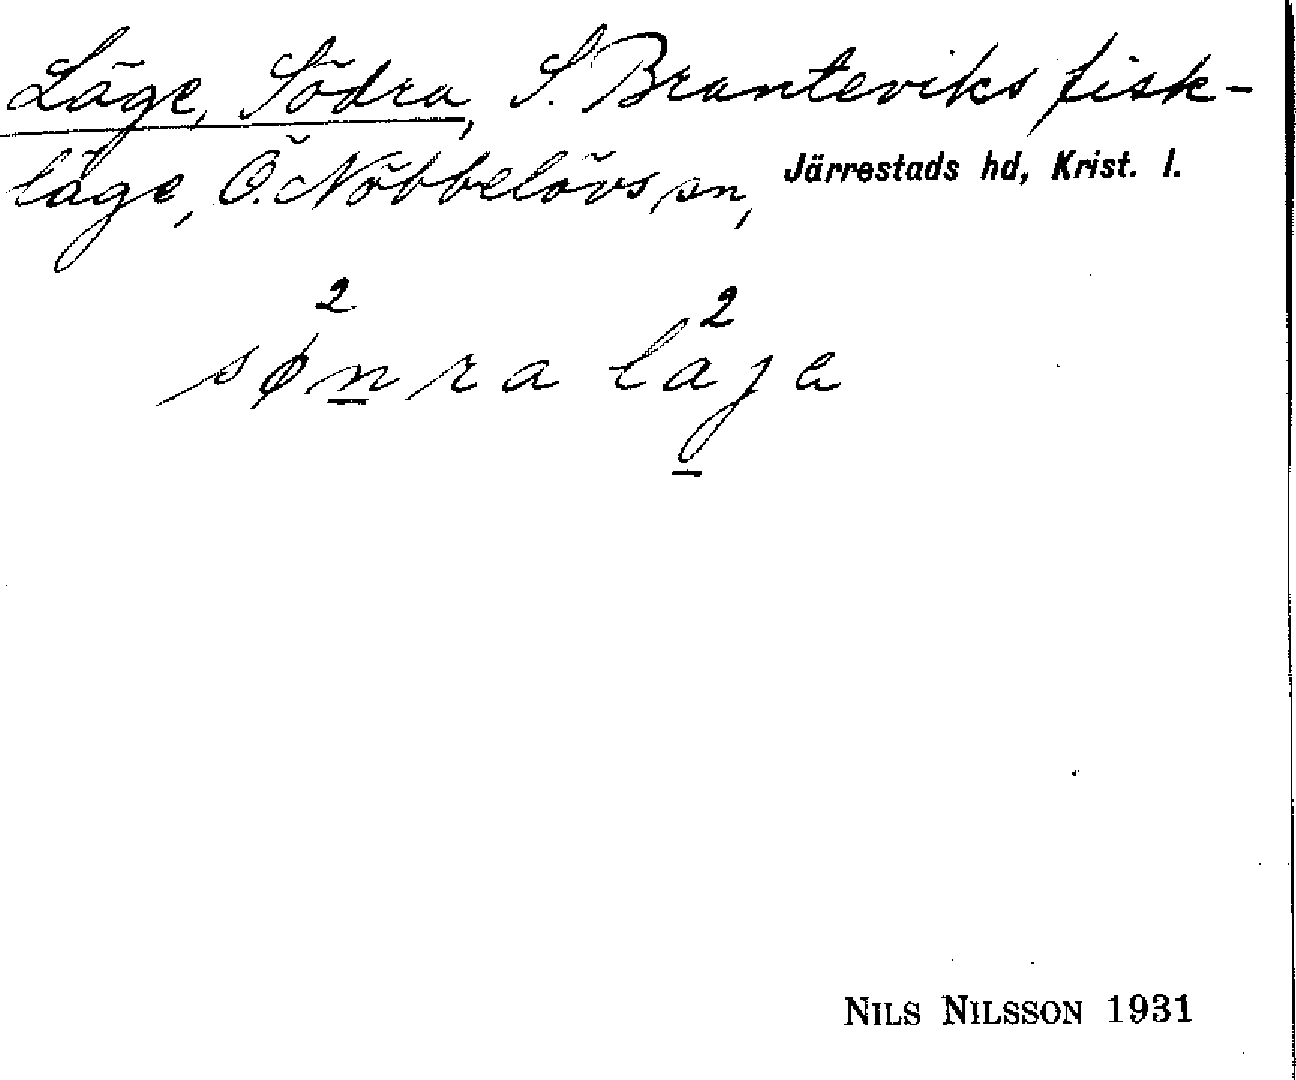 Läge, Södra, S. Branteviks fisk-
läge, Ö. Nöbbelövs sn, Järrestads hd, Krist. l.
2 2
sønra laja
NILS NILSSON 1931